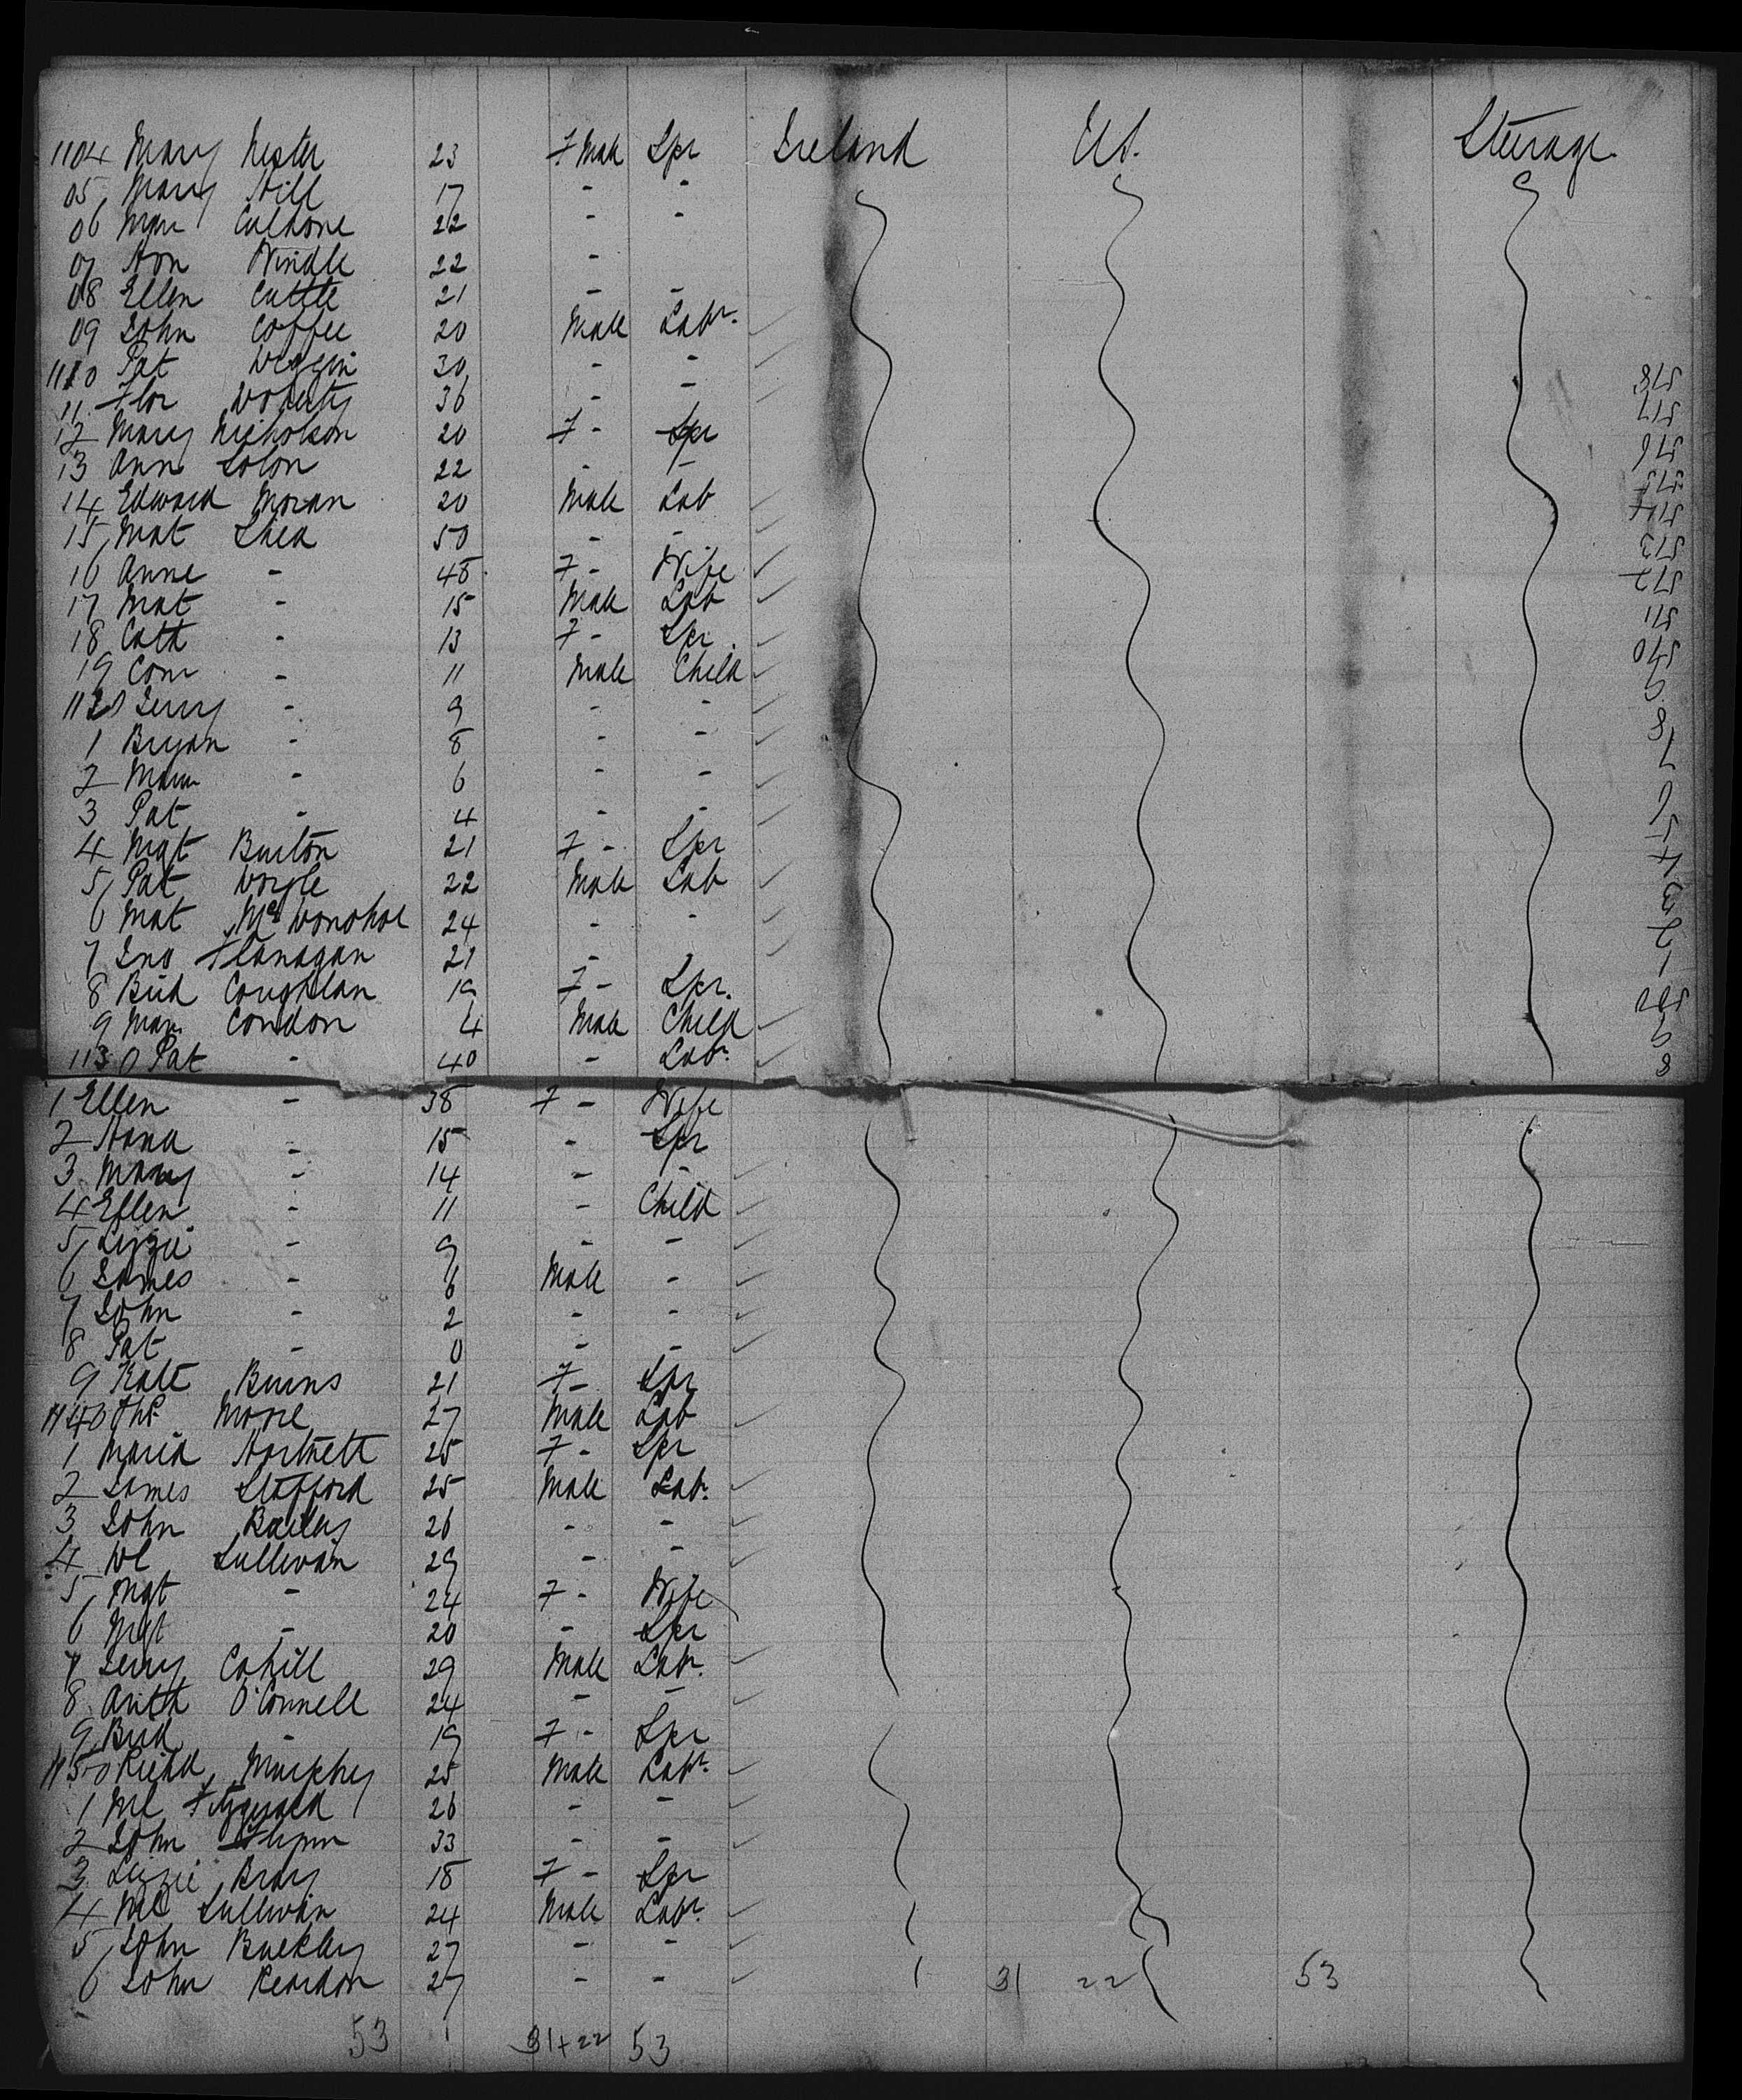 1104 Mary Nester 23 F Male Spr Ireland U.S. Steerage
05 Mary Hill 17 - -
06 Mar Culhane 22 - -
07 Hon Windle 22 -
08 Ellen Cuttle 21 - -
09 John Coffee 20 Male Labr.
1110 Pat Deggin 30 - -
11 Flor Doherty 36 - -
12 Mary Nicholson 20 F - Spr
13 Ann Solon 22 - -
14 Edward Moran 20 Male Lab
15 Mat Shea 50 - -
16 Anne - 48 F - Wife
17 Mat - 15 Male Lab
18 Cath - 13 F - Spr
19 Con - 11 Male Child
1120 Jerry - 9 - -
1 Bryan - 8 - -
2 Maur - 6 - -
3 Pat - 4 - -
4 Mgt Burton 21 F - Spr
5 Pat Doyle 22 Male Lab
6 Mat McDonohoe 24 - -
7 Jno Flanagan 21 -
8 Brid Coughlan 19 F - Spr.
9 Mar Condon 4 Male Child
1130 Pat - 40 - Labr.
1 Ellen - 38 F - Wife
2 Hana - 15 - Spr
3 Mary - 14 - -
4 Ellen - 11 - Child
5 Lizzie - 9 - -
6 James - 6 Male -
7 John - 2 - -
8 Pat - 0 - -
9 Kate Burns 21 F - Spr
1140 Ths Moore 27 Male Lab
1 Maria Hartnett 25 F - Spr
2 James Stafford 25 Male Labr.
3 John Bailey 26 - -
4 Dl Sullivan 29 - -
5 Mgt - 24 F - Wife
6 Mgt - 20 - Spr
7 Jerry Cahill 29 Male Labr.
8 Arith O'Connell 24 - -
9 Brid - 19 F - Spr
1150 Richd Murphy 25 Male Labr.
1 Ml Fitzgerald 26 - -
2 John Flynn 33 - -
3 Lizzie Bray 18 F - Spr
4 Ml Sullivan 24 Male Labr.
5 John Buckley 27 - -
6 John Reardon 27 - - 31 22 53
53 31+22 53
518
517
516
515
514
513
512
511
510
9
8
7
6
5
4
3
2
1
500
9
8